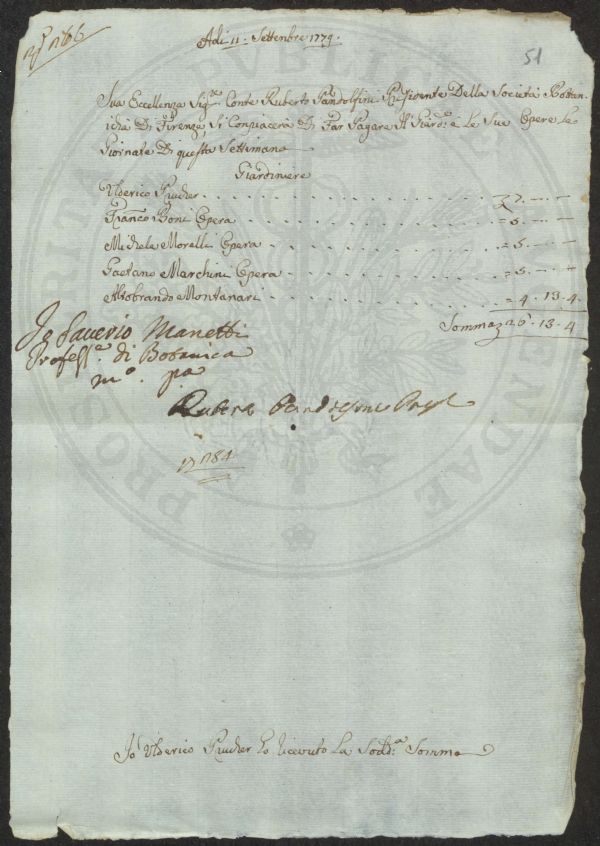 Nº 166
Adi 11. Settembre 1779.
51
Sua Eccellenza Sigre. Conte Ruberto Pandolfini Presidente Della Società Bottan-
icha Di Firenze Si Conpiacerà Di Far Pagare Al Giardo: e Le Sue Opere Le
Giornate Di questa Settimana
Giardiniere
Ulderico Prucher 7.
Franco Boni Opera = 5.
Michele Morelli Opera = 5.
Gaetano Marchini Opera = 5.
Aldobrando Montanari = 4. 13. 4
Somma 26. 13. 4
Io Saverio Manetti
Profess.e di Botanica
mo. pa
Ruberto Pandolfini Presidte
184
Io Ulderico Prucher ho ricevuto La Sodda. Somma
PROSP PVBLICAE AVGENDAE